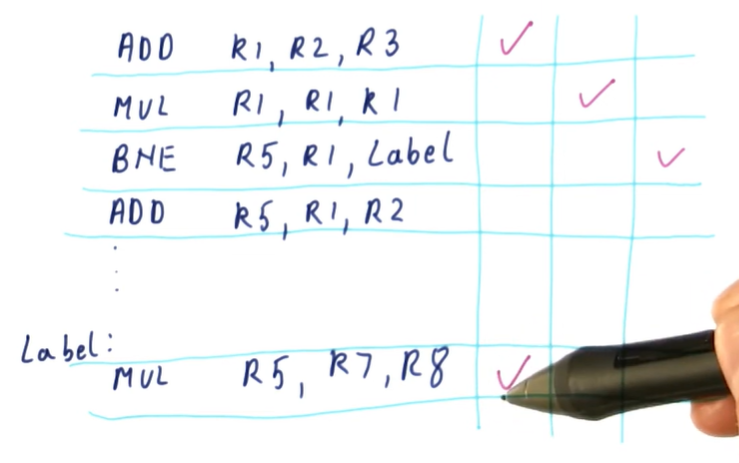 ADD R1, R2, R3 ✓
MUL R1, R1, R1 ✓
BNE R5, R1, Label ✓
ADD R5, R1, R2
Label:
MUL R5, R7, R8 ✓